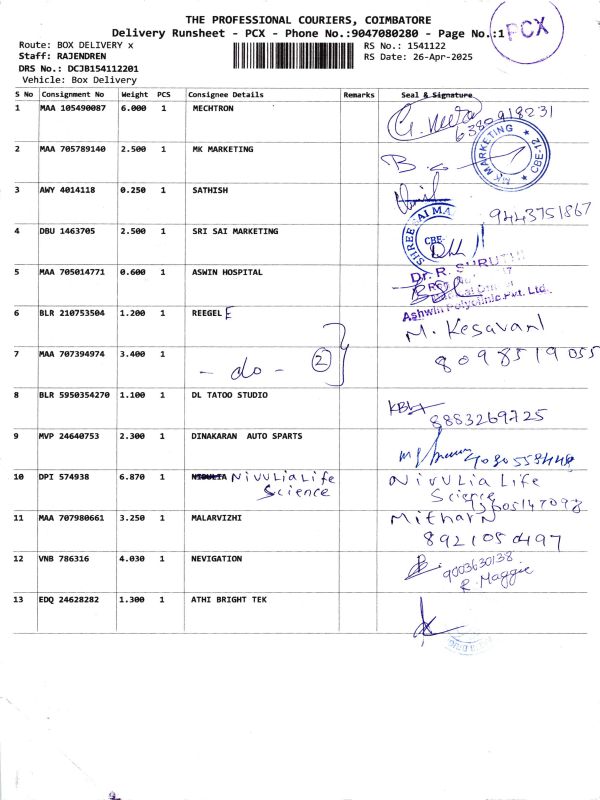 THE PROFESSIONAL COURIERS, COIMBATORE
Delivery Runsheet - PCX - Phone No.:9047080280 - Page No.:1
PCX
Route: BOX DELIVERY x
RS No.: 1541122
Staff: RAJENDREN
RS Date: 26-Apr-2025
DRS No.: DCJB154112201
Vehicle: Box Delivery
S No Consignment No Weight PCS Consignee Details Remarks Seal & Signature
1 MAA 105490087 6.000 1 MECHTRON
6380918231
2 MAA 705789140 2.500 1 MK MARKETING
MK MARKETING CBE-12
3 AWY 4014118 0.250 1 SATHISH
9443751867
4 DBU 1463705 2.500 1 SRI SAI MARKETING
SHREE SAI MA
CBE-
5 MAA 705014771 0.600 1 ASWIN HOSPITAL
Dr. R. SHRUTHI
Ashwin Polyclinic Pvt. Ltd.
6 BLR 210753504 1.200 1 REEGEL E
M. Kesavan
7 MAA 707394974 3.400 1
- do - 2
8098519055
8 BLR 5950354270 1.100 1 DL TATOO STUDIO
8883269725
9 MVP 24640753 2.300 1 DINAKARAN AUTO SPARTS
10 DPI 574938 6.870 1 NivuLia Life Science
NivuLia Life
Science
11 MAA 707980661 3.250 1 MALARVIZHI
Mitharn
8921050497
12 VNB 786316 4.030 1 NEVIGATION
9003630138
R. Maggie
13 EDQ 24628282 1.300 1 ATHI BRIGHT TEK